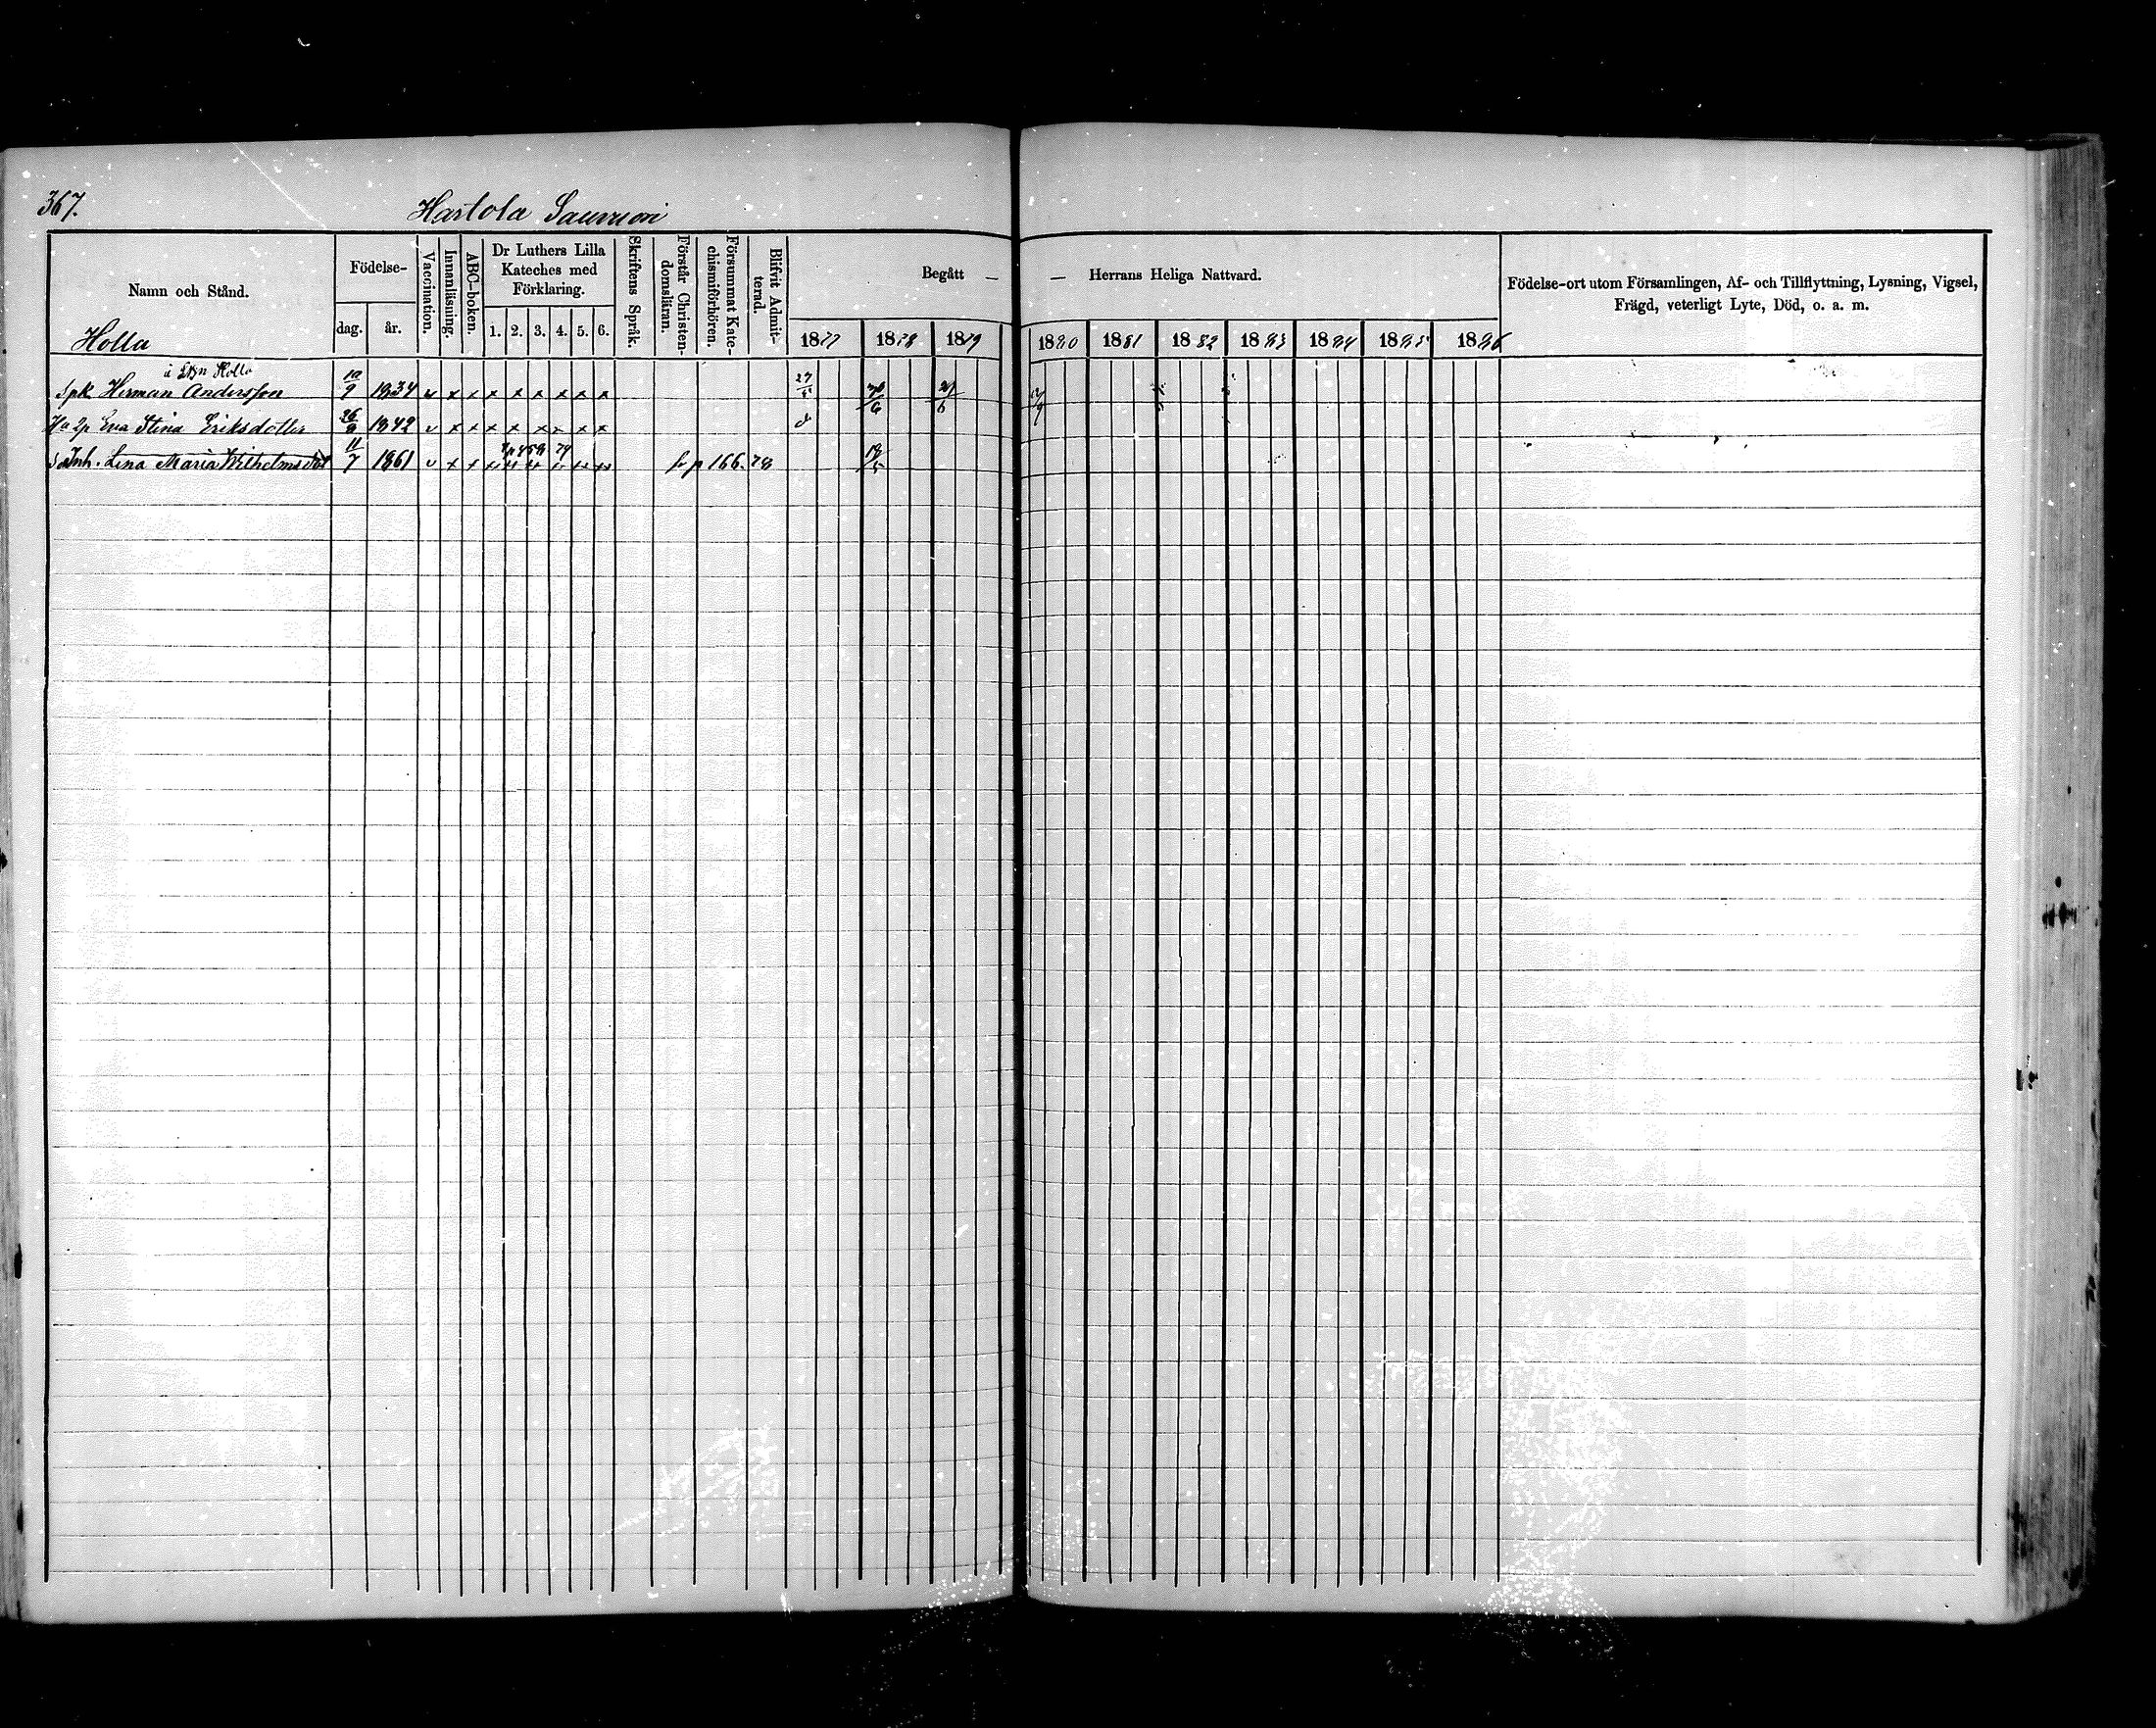 367.
Hartola Saunion
Namn och Stånd.
Födelse-
dag.
år.
Vaccination.
Innanläsning.
ABC-boken.
Dr Luthers Lilla
Kateches med
Förklaring.
1. 2. 3. 4. 5. 6.
Skriftens Språk.
Förstår Christen-
domsläran.
Försummat Kate-
chismiförhören.
Blifvit Admit-
terad.
Begått —
— Herrans Heliga Nattvard.
1877 1878 1879 1880 1881 1882 1883 1884 1885 1886
Födelse-ort utom Församlingen, Af- och Tillflyttning, Lysning, Vigsel,
Frägd, veterligt Lyte, Död, o. a. m.
Holla
Holla
Spk Herman Andersson 10/9 1834 v x x x x x x x x 27/5
Eva Stina Eriksdotter 1842 v x x x x x x x x
Inh. Lena Maria Wilhelmsdot 11/7 1861 v x x p 166. 78